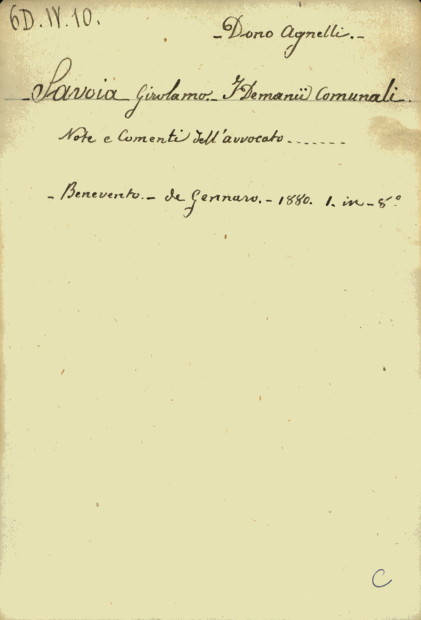 6D.IV.10.
- Dono Agnelli. -
- Savoia Girolamo. - I Demanii Comunali.
Note e Comenti dell'avvocato.......
- Benevento. - de Gennaro. - 1880. 1. in - 8°
C